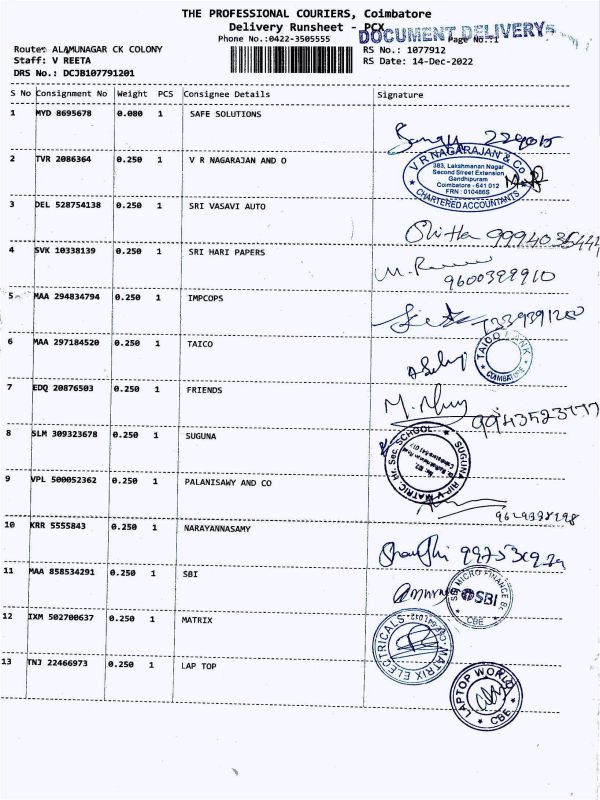 THE PROFESSIONAL COURIERS, Coimbatore
Delivery Runsheet - PCX
DOCUMENT DELIVERY
Phone No.:0422-3505555 Page No.:1
Route: ALAMUNAGAR CK COLONY RS No.: 1077912
Staff: V REETA RS Date: 14-Dec-2022
DRS No.: DCJB107791201
S No Consignment No Weight PCS Consignee Details Signature
1 MYD 8695678 0.080 1 SAFE SOLUTIONS
2 TVR 2086364 0.250 1 V R NAGARAJAN AND O
V R NAGARAJAN & Co
383, Lakshmanan Nagar
Second Street Extension
Gandhipuram
Coimbatore - 641 012
FRN : 010466S
CHARTERED ACCOUNTANTS
3 DEL 528754138 0.250 1 SRI VASAVI AUTO
4 SVK 10338139 0.250 1 SRI HARI PAPERS
9600388910
5 MAA 294834794 0.250 1 IMPCOPS
6 MAA 297184520 0.250 1 TAICO
TAICO BANK
COIMBATORE
7 EDQ 20876503 0.250 1 FRIENDS
8 SLM 309323678 0.250 1 SUGUNA
SUGUNA RIP V MATRIC Hr. Sec SCHOOL
9 VPL 500052362 0.250 1 PALANISAWY AND CO
10 KRR 5555843 0.250 1 NARAYANNASAMY
11 MAA 858534291 0.250 1 SBI
SBI MICRO FINANCE
SBI
CBE
12 IXM 502700637 0.250 1 MATRIX
MATRIX ELECTRICALS
13 TNJ 22466973 0.250 1 LAP TOP
LAPTOP WORLD
CBE